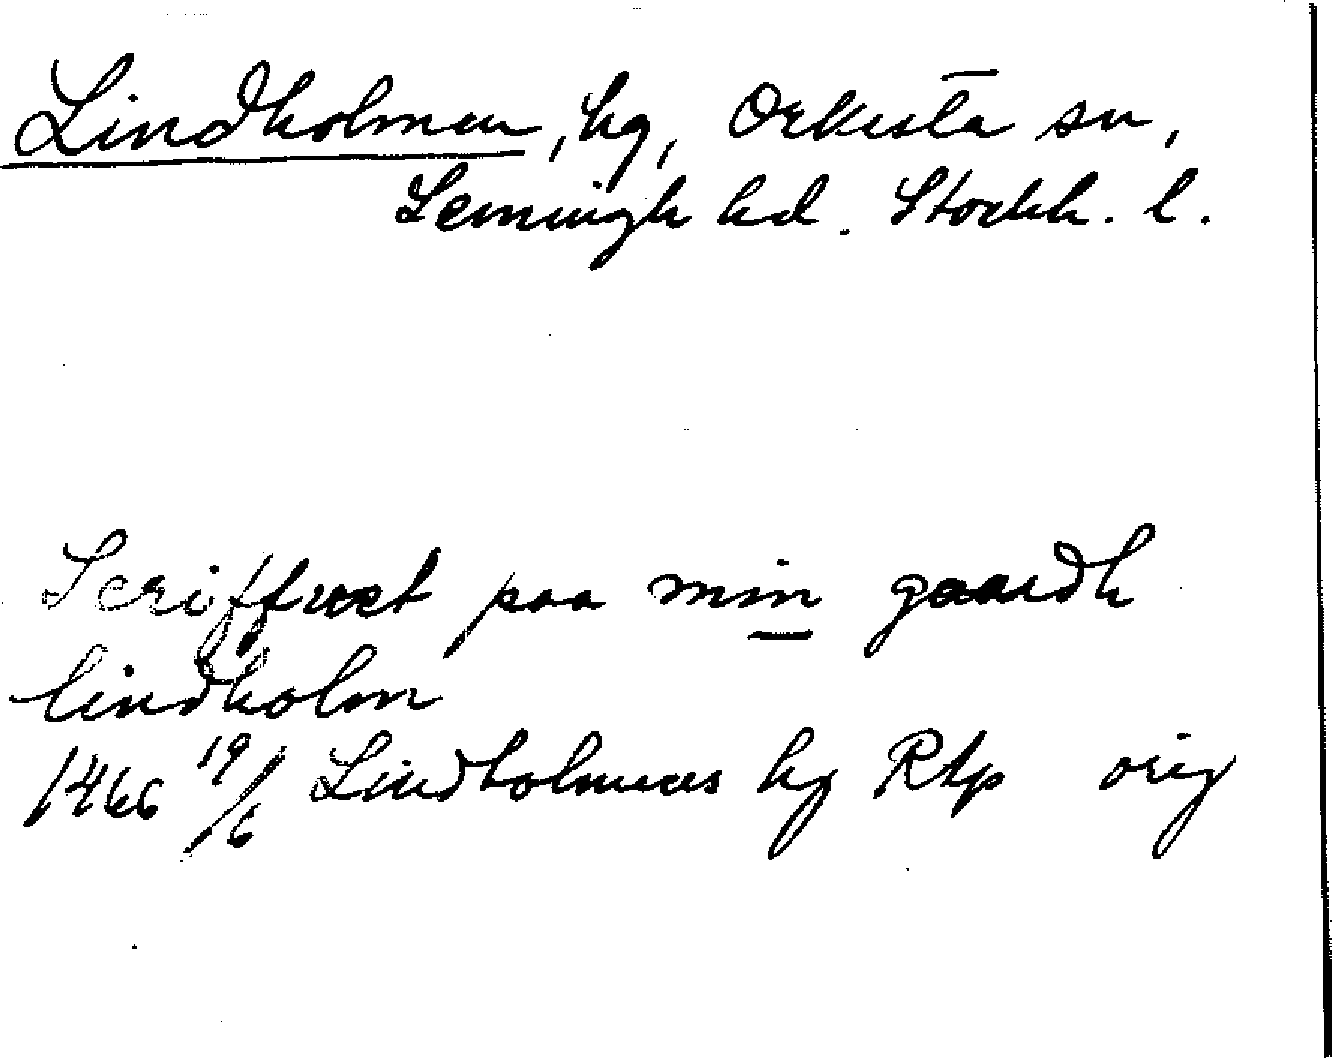 Lindholmen, hg, Orkesta sn,
Seminghdr hd. Stockh. l.
Scriffuet paa min gaardh
lindholm
1466 19/6 Lindholmens hg Rkp orig